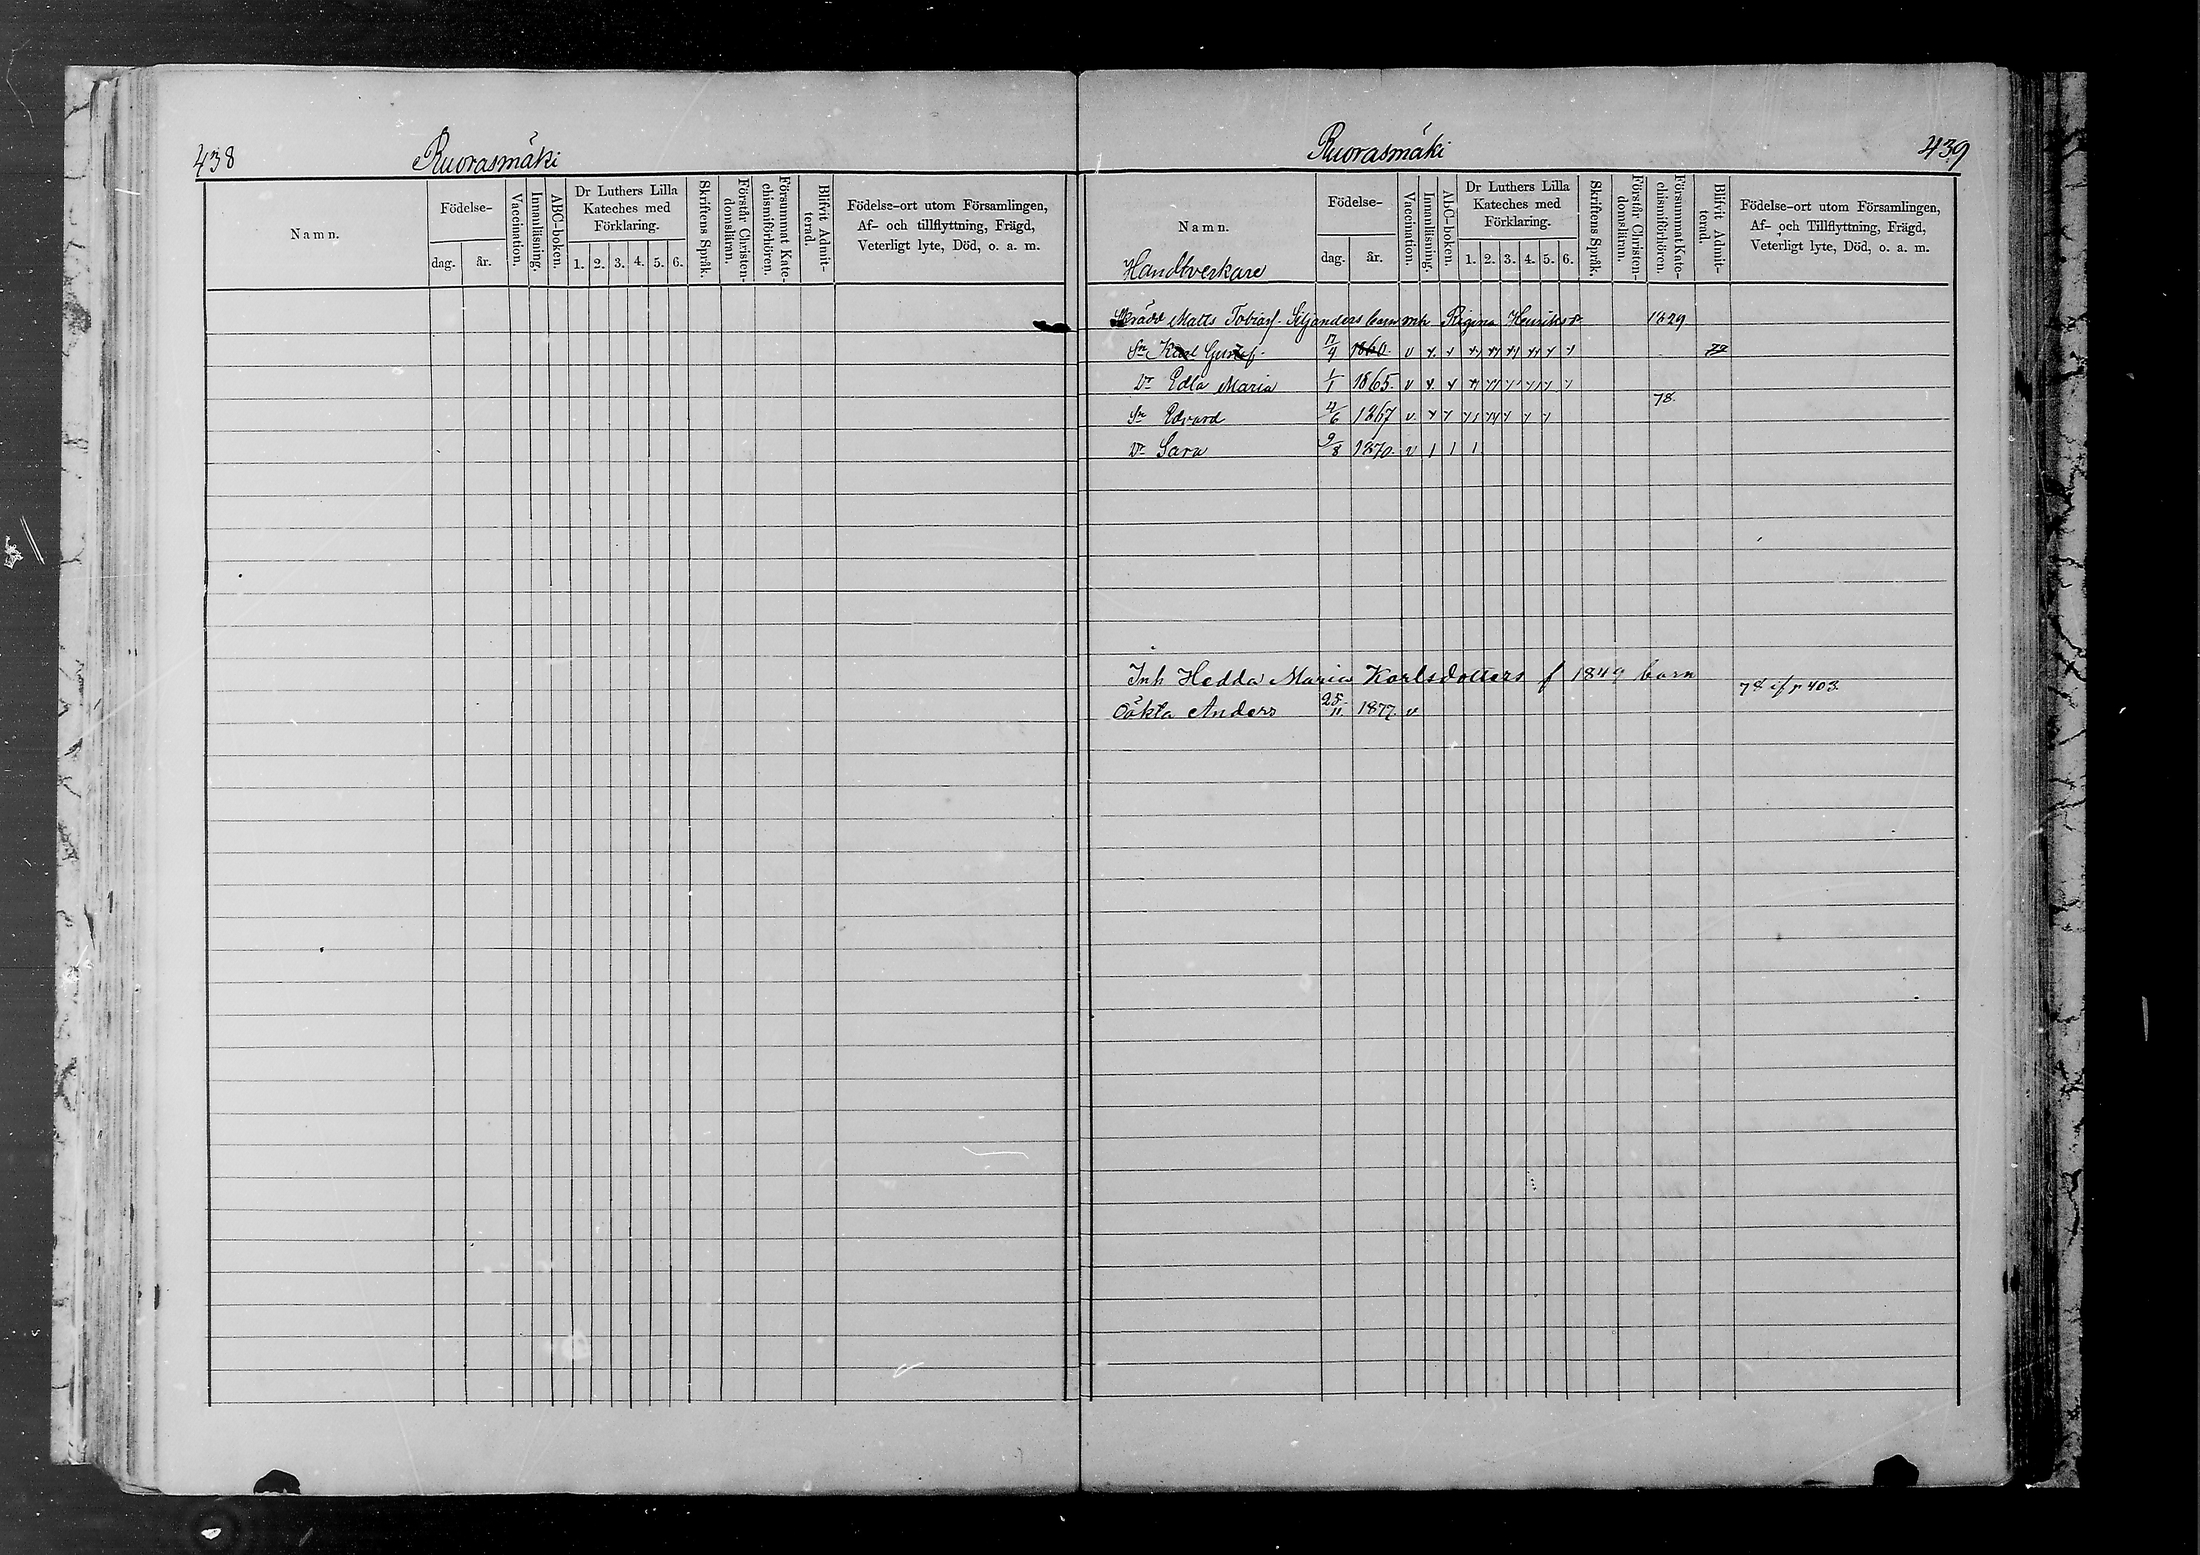 438
Ruorasmäki
Namn.
Födelse-
dag.
år.
Vaccination.
Innanläsning.
ABC-boken.
Dr Luthers Lilla
Kateches med
Förklaring.
1. 2. 3. 4. 5. 6.
Skriftens Språk.
Förstår Christen-
domsläran.
Försummat Kate-
chismiförhören.
Blifvit Admit-
terad.
Födelse-ort utom Församlingen,
Af- och tillflyttning, Frägd,
Veterligt lyte, Död, o. a. m.
Ruorasmäki
439
Namn.
Handtverkare
Födelse-
dag.
år.
Vaccination.
Innanläsning.
ABC-boken.
Dr Luthers Lilla
Kateches med
Förklaring.
1. 2. 3. 4. 5. 6.
Skriftens Språk.
Förstår Christen-
domsläran.
Försummat Kate-
chismiförhören.
Blifvit Admit-
terad.
Födelse-ort utom Församlingen,
Af- och Tillflyttning, Frägd,
Veterligt lyte, Död, o. a. m.
Matts Tobiasf. Siljanders barn mh Regina Henriksdr 1829
Sn Karl Gustaf 1860 v
Dr Edla Maria 1/1 1865 v
78.
Sn Edvard 4/6 1867 v
Dr Sara 9/8 1870 v 1 1 1
Inh Hedda Maria Karlsdotters f 1849 barn
78 if p 403.
Oäkta Anders 25/11 1877 v